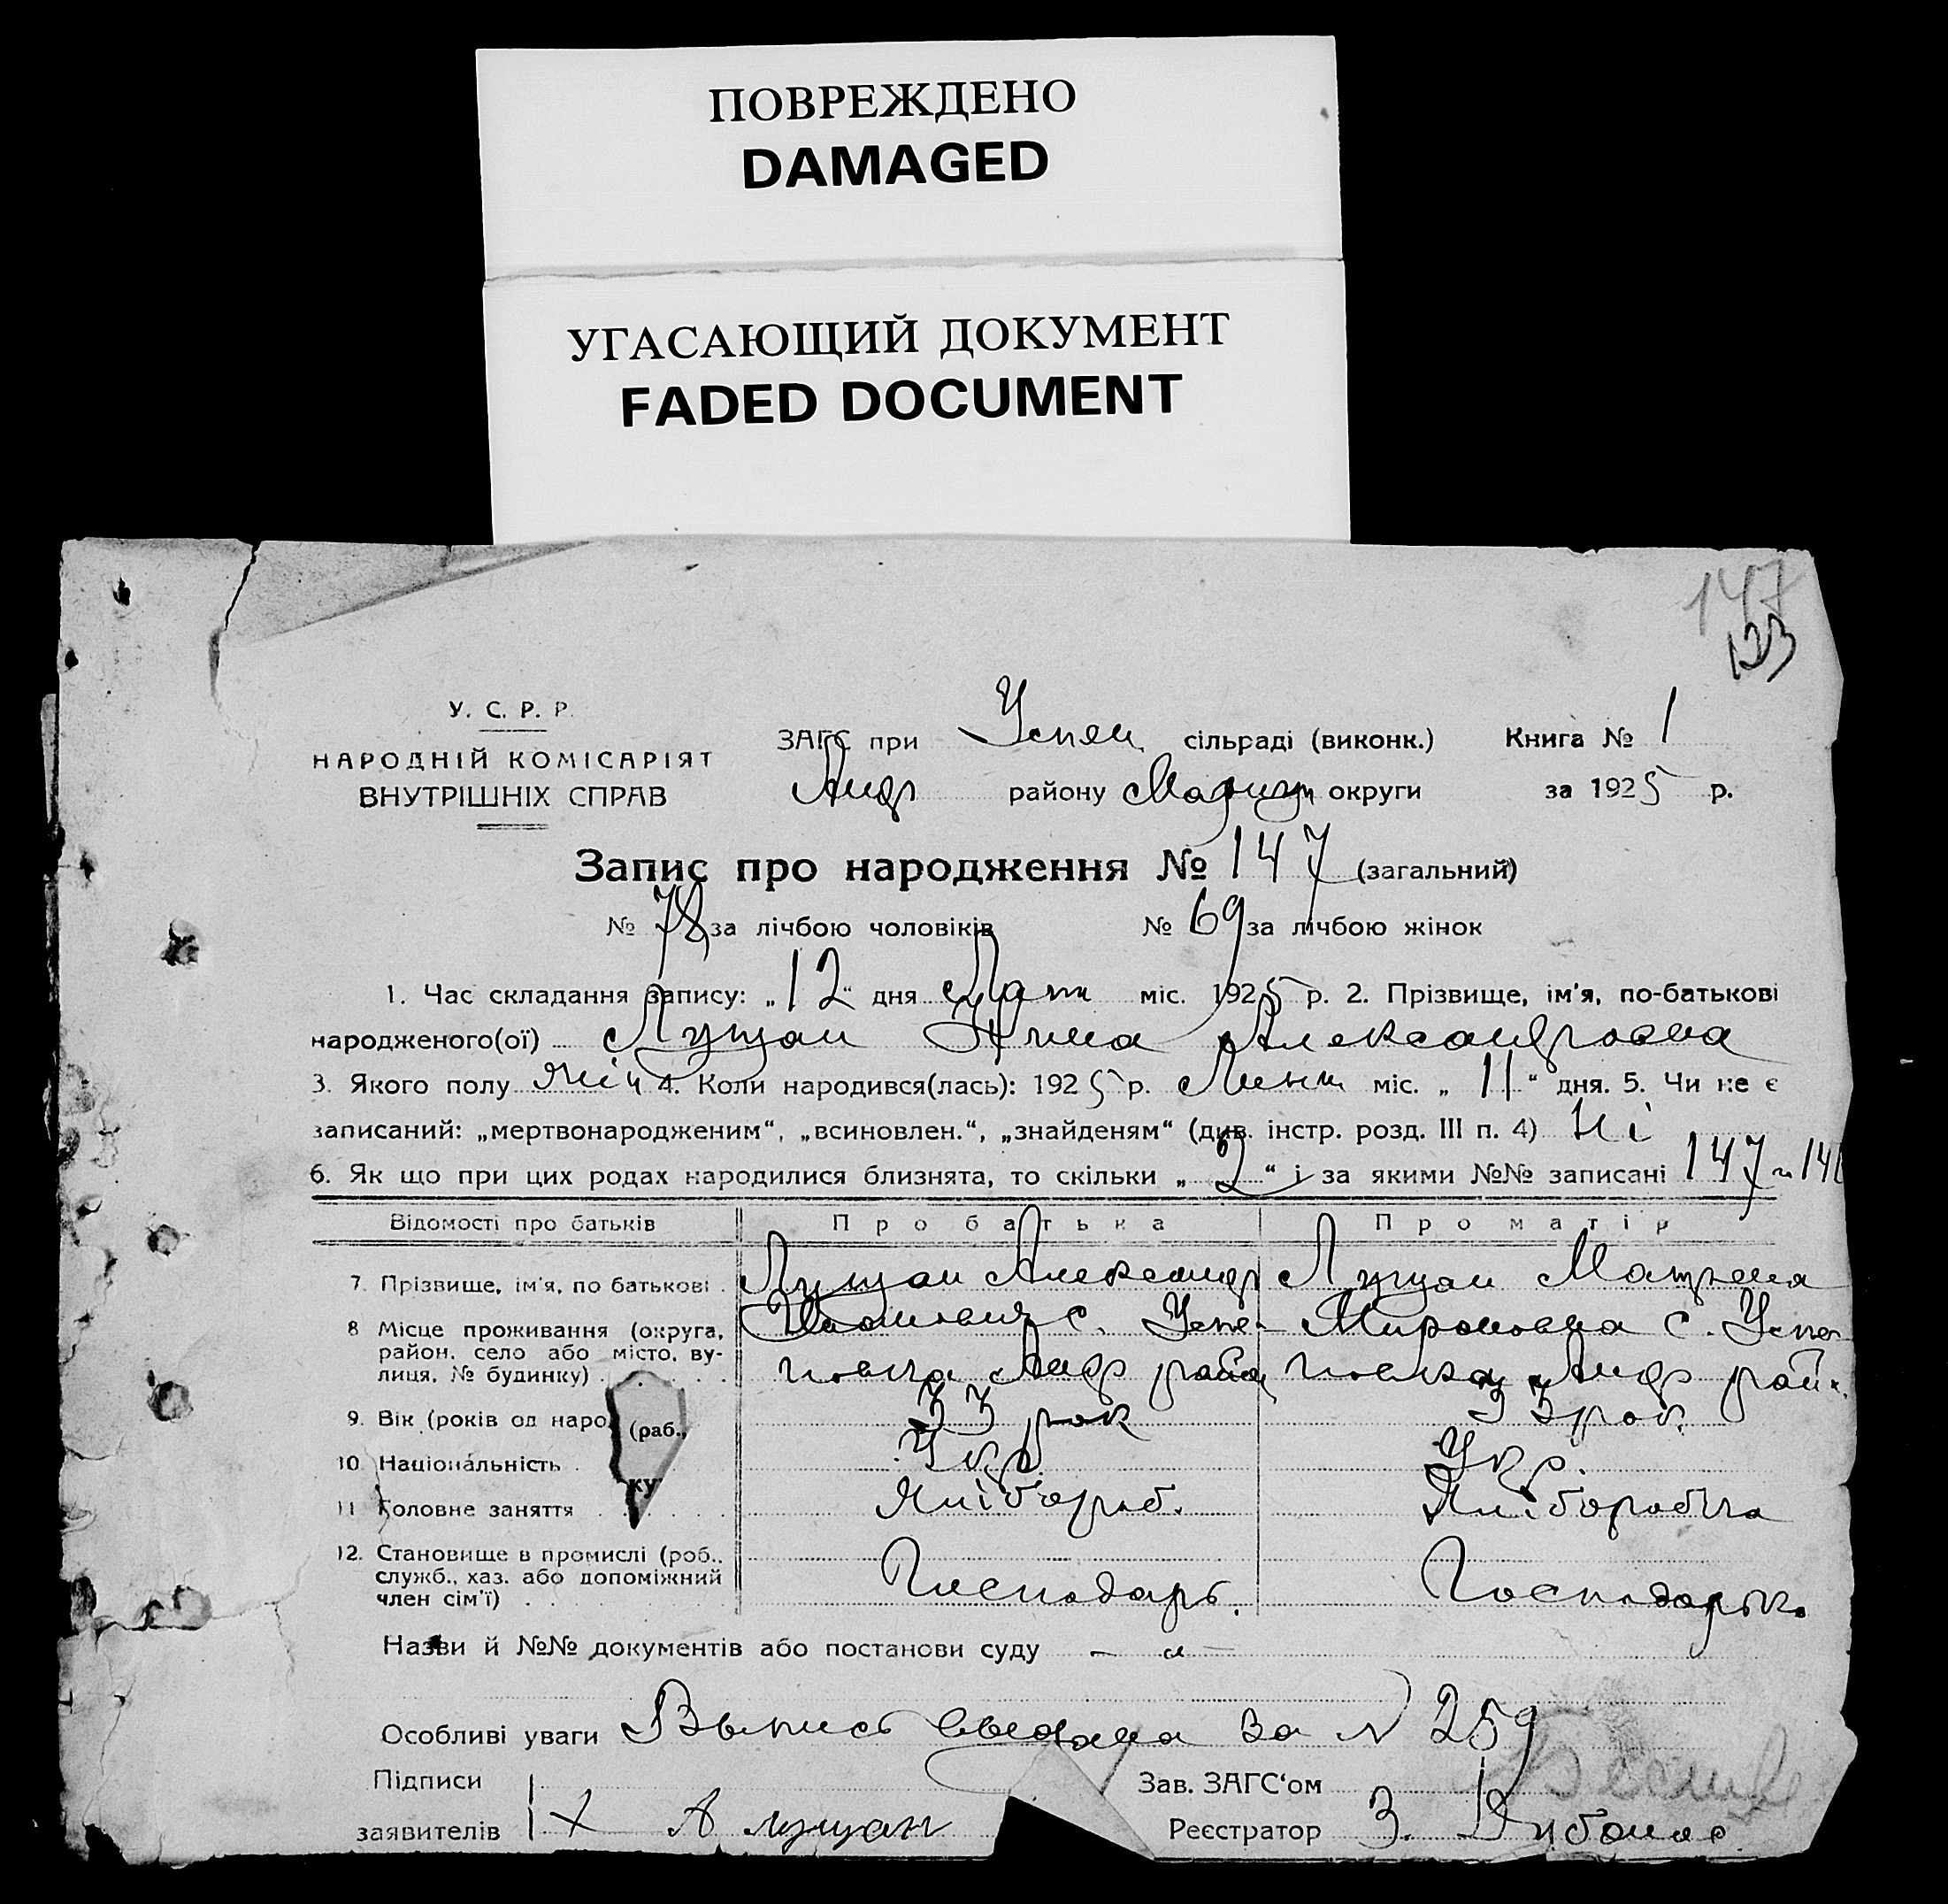 ПОВРЕЖДЕНО
DAMAGED
УГАСАЮЩИЙ ДОКУМЕНТ
FADED DOCUMENT
147
123
У. С. Р. Р.
НАРОДНІЙ КОМІСАРІЯТ
ВНУТРІШНІХ СПРАВ
ЗАГС при Успен сільраді (виконк.) Книга № 1
Андр району Маріуп округи за 1925 р.
Запис про народження № 147 (загальний)
№ 78 за лічбою чоловіків № 69 за лічбою жінок
1. Час складання запису: „12“ дня міс. 1925 р. 2. Прізвище, ім'я, по-батькові
народженого(ої) Лущан Нина Александровна
3. Якого полу жін 4. Коли народився(лась): 1925 р. міс. „11“ дня. 5. Чи не є
записаний: „мертвонародженим“, „всиновлен.“, „знайденям“ (див. інстр. розд. III п. 4) Ні
6. Як що при цих родах народилися близнята, то скільки „2“ і за якими №№ записані 147
Відомості про батьків Про батька Про матір
7. Прізвище, ім'я, по батькові . Лущан Александр Лущан Матрена
8 Місце проживання (округа, с. Успе- Мироновна с. Успе
район, село або місто, ву-
лиця, № будинку) новка Андр район новка Андр район
9. Вік (років од наро (раб., 33 рок 33 рок.
10 Національність Укр. Укр.
ку
11 Головне заняття Хлібороб. Хліборобка
12. Становище в промислі (роб.,
служб., хаз. або допоміжний Господарь. Господарька
член сім'ї)
Назви й №№ документів або постанови суду — " —
Особливі уваги Выпись выдана за N 259
Підписи Зав. ЗАГС'ом
заявителів + А лущан Реєстратор З.